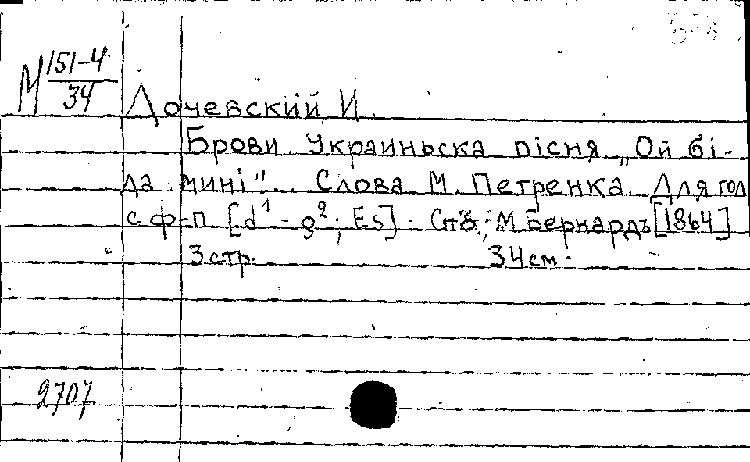 М 151-4
34
Дочевский И.
Брови. Украиньска пісня „Ой бі-
да мині"... Слова М. Петренка. Для гол
с ф-п [d¹ - g²; Es]. Спб, М Бернардъ [1864]
3 стр. 34 см.
2707